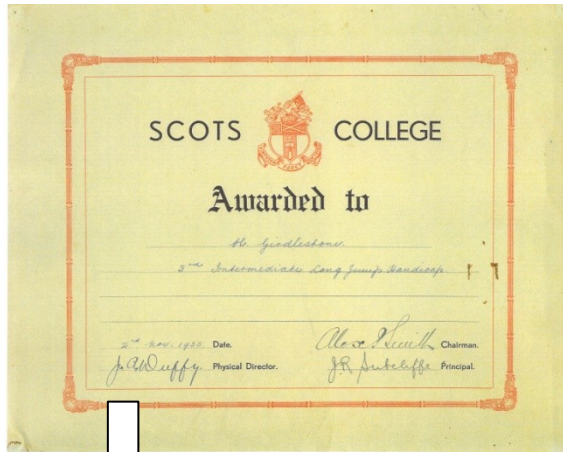 SCOTS COLLEGE
Awarded to
H. Girdlestone
3rd Intermediate Long Jump Handicap
2nd Nov. 1933 Date. Chairman.
Physical Director. J.R. Sutcliffe Principal.